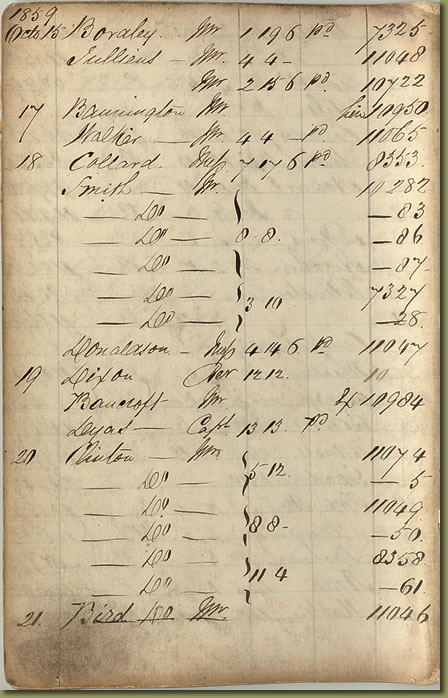 1859
Octr 15 Boraley Mr 1 19 6 pd 7325
Jullien — Mr. 4 4 - 11048
Mr 2 15 6 pd 10722
17 Bannington Mr. 10950
Walker — Mr. 4 4 — pd 11065
18 Collard Miss 7 17 6 pd 8353
Smith — Mr. 10282
— Do — — 83
— Do — 8 8 . — 86
— Do — — 87
— Do — 7327
— Do — 3 10 — 28
Donaldson — Miss 4 14 6 pd 11047
19 Dixon 12 12 . 10
Bancroft Mr 10984
Lyas — Capt 13 13 . pd
20 Clinton — Mrs 11074
— Do — 5 12 . — 5
— Do — 11049
— Do — 8 8 - — 50
— Do — 8358
— Do — 11 4 — 61
21 Bird Mr. 11046